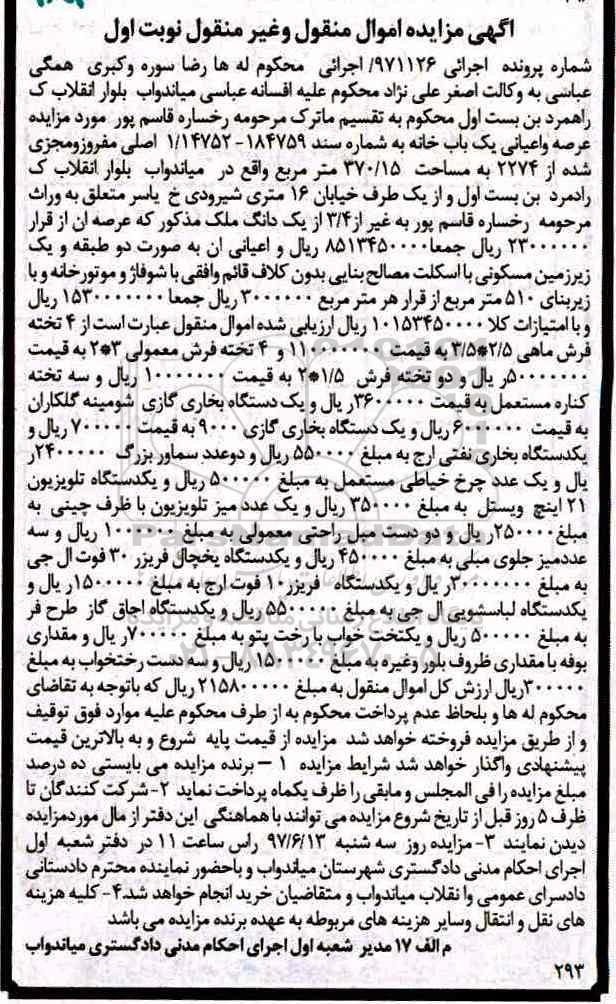 آگهی مزایده اموال منقول وغیر منقول نوبت اول
شماره پرونده اجرائی ۹۷۱۱۲۶/ اجرائی محکوم له ها رضا سوره وکبری همگی
عباسی به وکالت اصغر علی نژاد محکوم علیه افسانه عباسی میاندواب بلوار انقلاب ک
راهمرد بن بست اول محکوم به تقسیم ماترک مرحومه رخساره قاسم پور مورد مزایده
عرصه واعیانی یک باب خانه به شماره سند ۱۸۴۷۵۹- ۱/۱۴۷۵۲ اصلی مفروزومجزی
شده از ۲۲۷۴ به مساحت ۳۷۰/۱۵ متر مربع واقع در میاندواب بلوار انقلاب ک
رادمرد بن بست اول و از یک طرف خیابان ۱۶ متری شیرودی خ یاسر متعلق به وراث
مرحومه رخساره قاسم پور به غیر از۳/۴ از یک دانگ ملک مذکور که عرصه ان از قرار
۲۳۰۰۰۰۰۰ ریال جمعا۸۵۱۳۴۵۰۰۰۰ ریال و اعیانی ان به صورت دو طبقه و یک
زیرزمین مسکونی با اسکلت مصالح بنایی بدون کلاف قائم وافقی با شوفاژ و موتورخانه و با
زیربنای ۵۱۰ متر مربع از قرار هر متر مربع ۳۰۰۰۰۰۰ ریال جمعا ۱۵۳۰۰۰۰۰۰۰ ریال
و با امتیازات کلا ۱۰۱۵۳۴۵۰۰۰۰ ریال ارزیابی شده اموال منقول عبارت است از ۴ تخته
فرش ماهی ۲/۵*۳/۵ به قیمت ۱۱۰۰۰۰۰۰۰ و ۴ تخته فرش معمولی ۳*۲ به قیمت
۵۰۰۰۰۰۰۰ر یال و دو تخته فرش ۱/۵*۲ به قیمت ۱۰۰۰۰۰۰۰ ریال و سه تخته
کناره مستعمل به قیمت ۳۶۰۰۰۰۰ر یال و یک دستگاه بخاری گازی شومینه گلکاران
به قیمت ۶۰۰۰۰۰۰ ریال و یک دستگاه بخاری گازی ۹۰۰۰ به قیمت ۷۰۰۰۰۰ ریال و
یکدستگاه بخاری نفتی ارج به مبلغ ۵۵۰۰۰۰ ریال و دوعدد سماور بزرگ ۲۴۰۰۰۰۰ر
یال و یک عدد چرخ خیاطی مستعمل به مبلغ ۵۰۰۰۰۰ ریال و یکدستگاه تلویزیون
۲۱ اینچ ویستل به مبلغ ۳۵۰۰۰۰ ریال و یک عدد میز تلویزیون با ظرف چینی به
مبلغ۲۵۰۰۰۰ر یال و دو دست مبل راحتی معمولی به مبلغ ۱۰۰۰۰۰۰ ریال و سه
عددمیز جلوی مبلی به مبلغ ۴۵۰۰۰۰ ریال و یکدستگاه یخچال فریزر ۳۰ فوت ال جی
به مبلغ ۲۰۰۰۰۰۰۰ر یال و یکدستگاه فریزر ۱۰ فوت ارج به مبلغ ۱۵۰۰۰۰۰ر یال و
یکدستگاه لباسشویی ال جی به مبلغ ۵۵۰۰۰۰۰ ریال و یکدستگاه اجاق گاز طرح فر
به مبلغ ۵۰۰۰۰۰ ریال و یکتخت خواب با رخت پتو به مبلغ ۷۰۰۰۰۰ر یال و مقداری
بوفه با مقداری ظروف بلور وغیره به مبلغ ۱۵۰۰۰۰۰ ریال و سه دست رختخواب به مبلغ
۳۰۰۰۰۰ریال ارزش کل اموال منقول به مبلغ ۲۱۵۸۰۰۰۰۰ ریال که باتوجه به تقاضای
محکوم له ها و بلحاظ عدم پرداخت محکوم به از طرف محکوم علیه موارد فوق توقیف
و از طریق مزایده فروخته خواهد شد مزایده از قیمت پایه شروع و به بالاترین قیمت
پیشنهادی واگذار خواهد شد شرایط مزایده ۱ – برنده مزایده می بایستی ده درصد
مبلغ مزایده را فی المجلس و مابقی را ظرف یکماه پرداخت نماید ۲-شرکت کنندگان تا
ظرف ۵ روز قبل از تاریخ شروع مزایده می توانند با هماهنگی این دفتر از مال موردمزایده
دیدن نمایند ۳- مزایده روز سه شنبه ۹۷/۶/۱۳ راس ساعت ۱۱ در دفتر شعبه اول
اجرای احکام مدنی دادگستری شهرستان میاندواب و باحضور نماینده محترم دادستانی
دادسرای عمومی وا نقلاب میاندواب و متقاضیان خرید انجام خواهد شد.۴- کلیه هزینه
های نقل و انتقال وسایر هزینه های مربوطه به عهده برنده مزایده می باشد
م الف ۱۷ مدیر شعبه اول اجرای احکام مدنی دادگستری میاندواب
۲۹۳